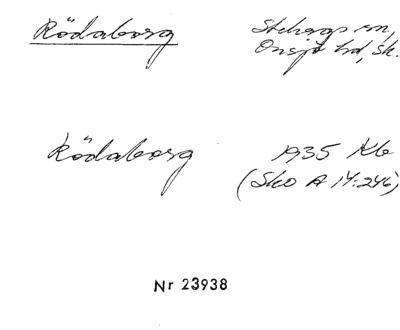 Rödaborg Stehags sn,
Onsjö hd, Sk.
Rödaborg 1935 Kb
(SkO A 14:246)
Nr 23938